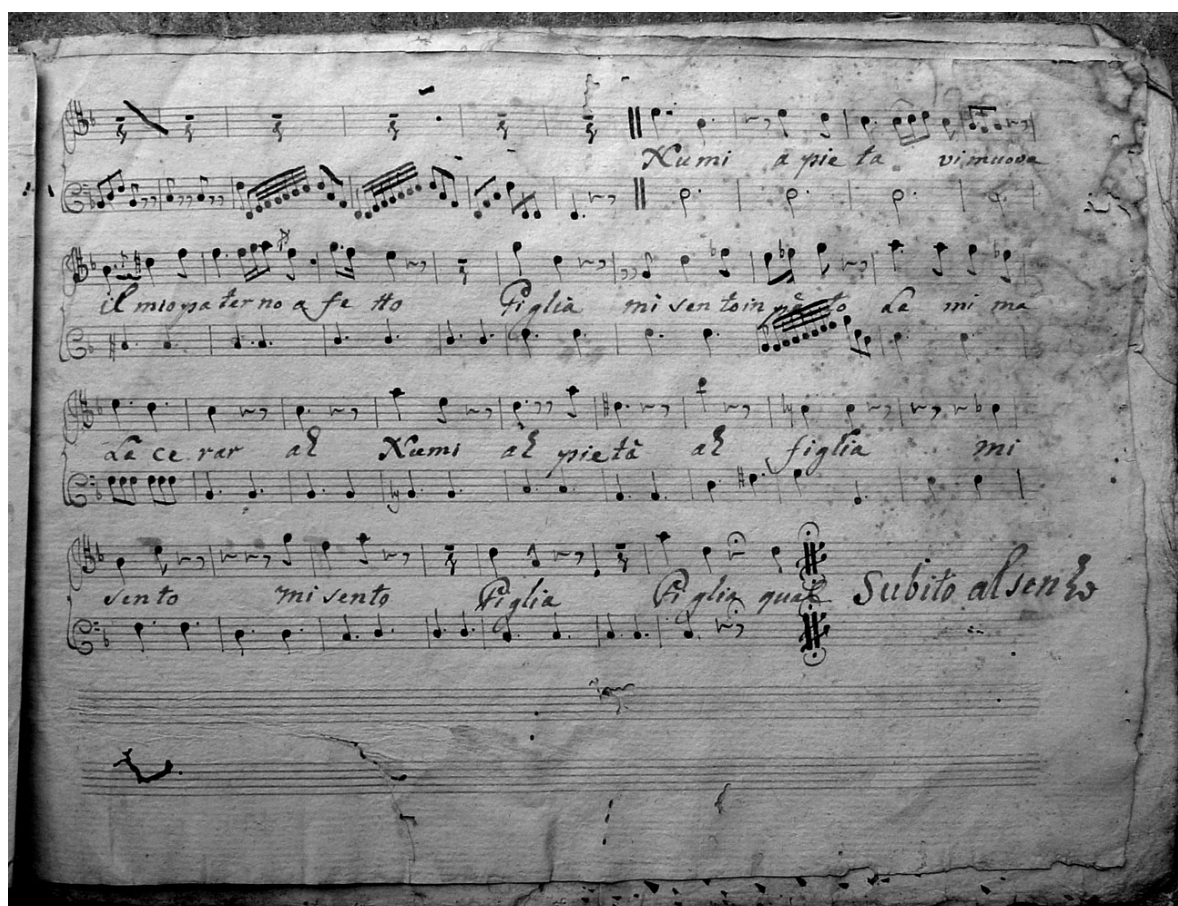 Numi a pie ta vi muova
il mio pa ter no a fe tto Figlia mi sen to in petto La mi ma
La ce rar ah Numi ah pietà ah figlia mi
sento mi sento Figlia Figlia qual Subito al senho